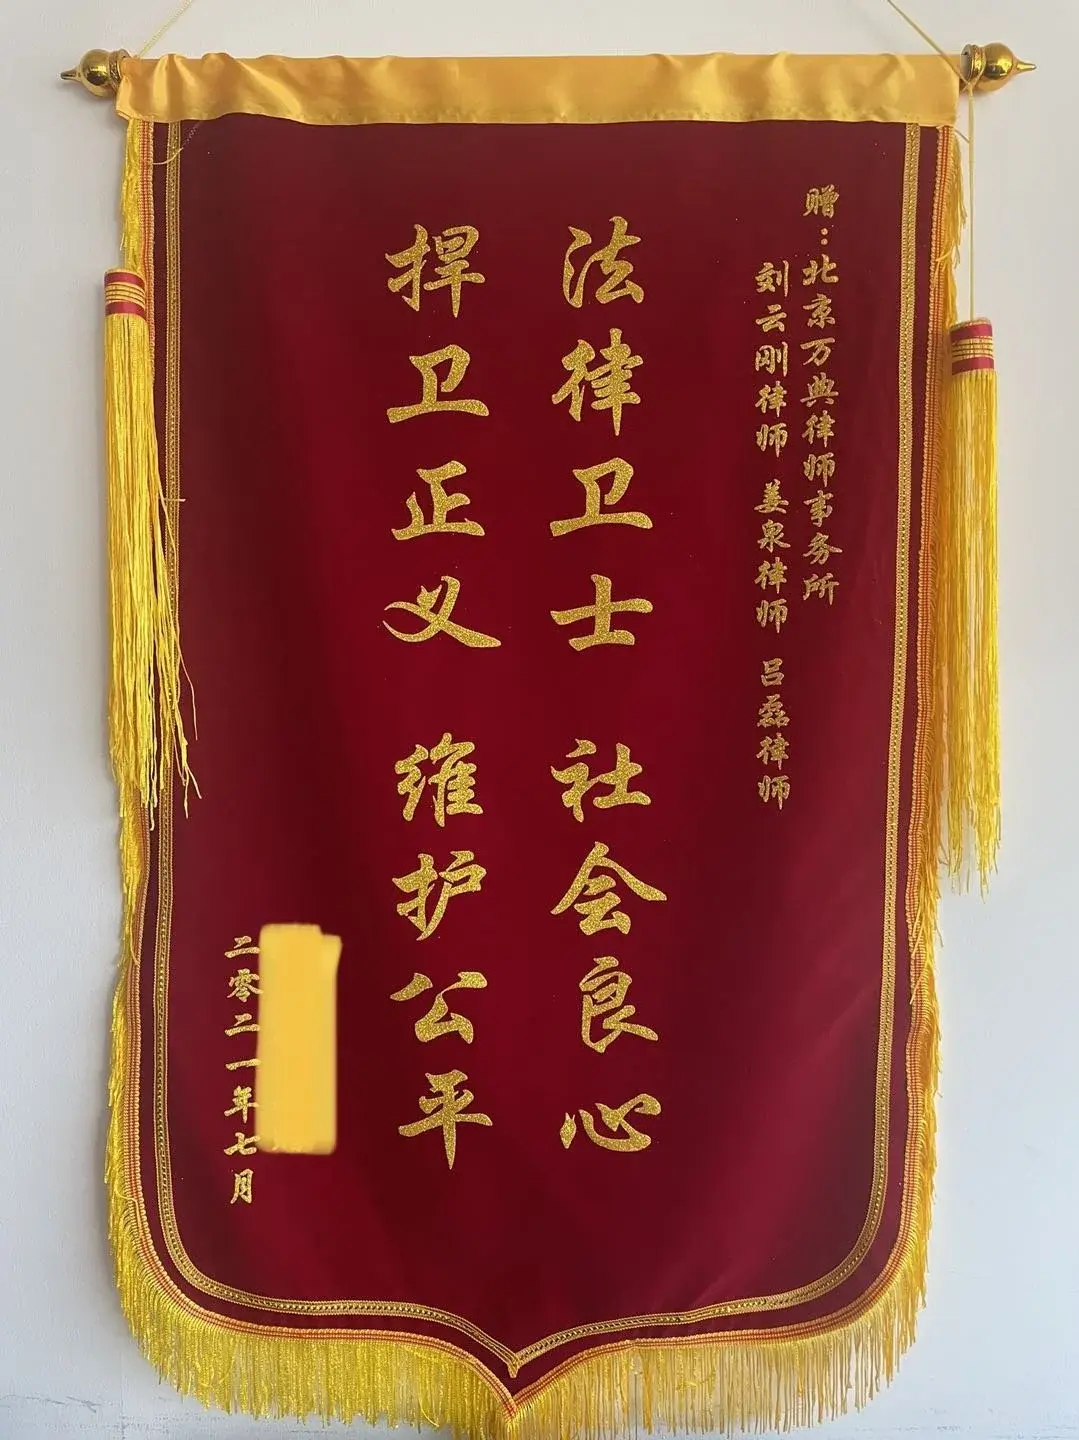 赠：北京万典律师事务所
刘云刚律师 姜泉律师 吕磊律师
法律卫士 社会良心
捍卫正义 维护公平
二零二一年七月